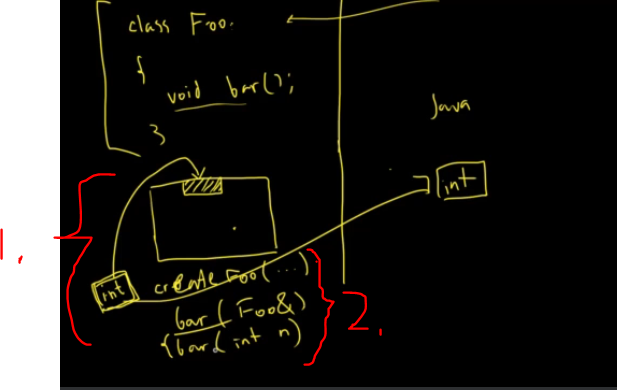 class Foo.
{
void bar();
}
Java
int
1.
int
createFoo(...)
bar(Foo&)
{bar(int n)
2.